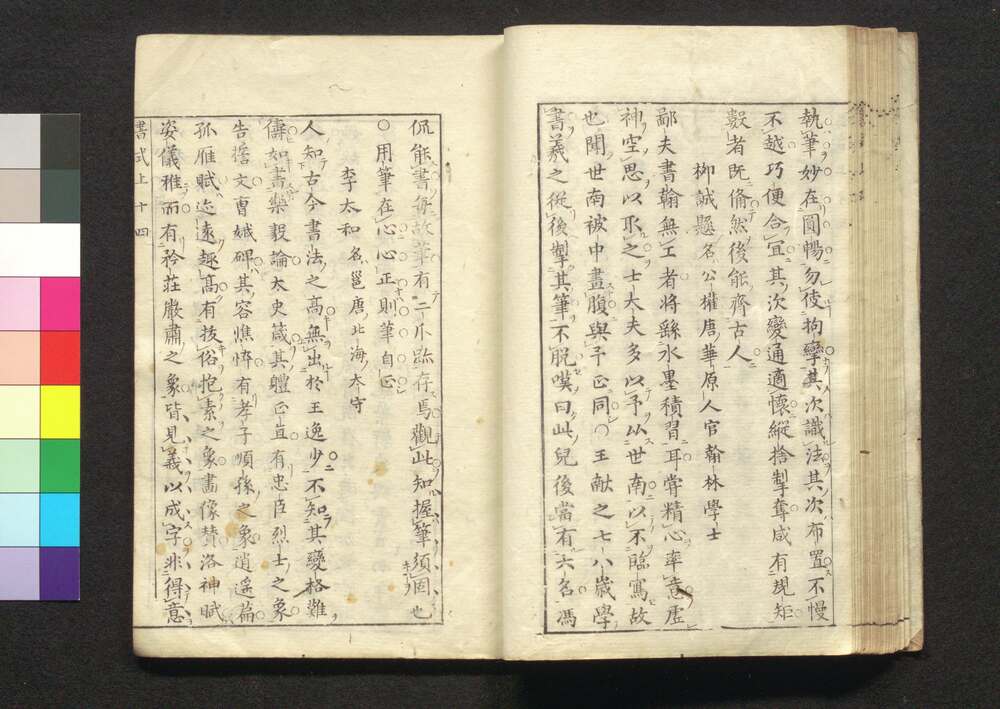 執筆妙在圓暢勿使拘攣其次識法其次布置不慢
不越巧便合冝其次變通適懷縱捨掣奪咸有規矩
數者既備然後能齊古人
柳誠懸名公權唐華原人官翰林學士
鄙夫書翰無工者將繇水墨積習耳甞精心率意虛
神空思以取之士大夫多以予似世南以不臨寫故
也聞世南被中畫腹與予正同〇王献之七八歲學
書羲之從後掣其筆不脫嘆曰此兒後當有大名馮
侃能書毎故筆有二爪跡存焉觀此知握筆須固也
〇用筆在心心正則筆自正
李太和名邕唐北海太守
人知古今書法之高無出於王逸少不知其變格難
儔如書樂毅論太史箴其體正直有忠臣烈士之象
告誓文曹娥碑其容憔悴有孝子順孫之象逍遙篇
孤雁賦迹遠趣高有拔俗抱素之象畫像賛洛神賦
姿儀雅而有矜莊嚴肅之象皆見義以成字非得意
書式上十四